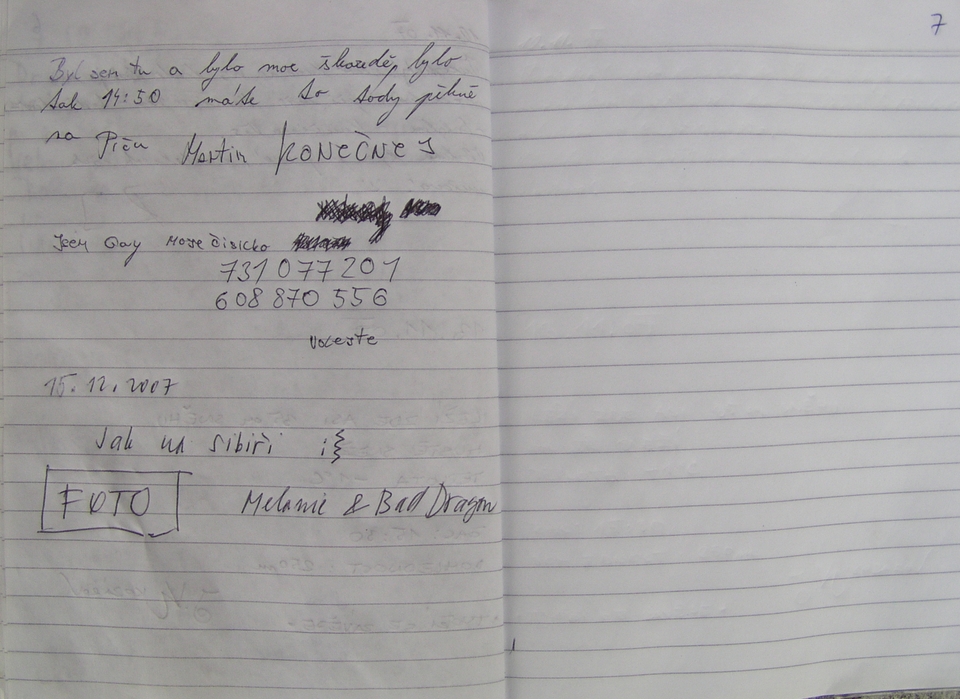 7
Byl sem tu a bylo moc škaredě, bylo
tak 14:50 máte to tody pěkně
na Piču Martin KONEČNEJ
Jsem Gay moje čisicko
731 077 201
608 870 556
voleste
15.12.2007
Jak na Sibiři
FOTO Melanie & Bad Dragon